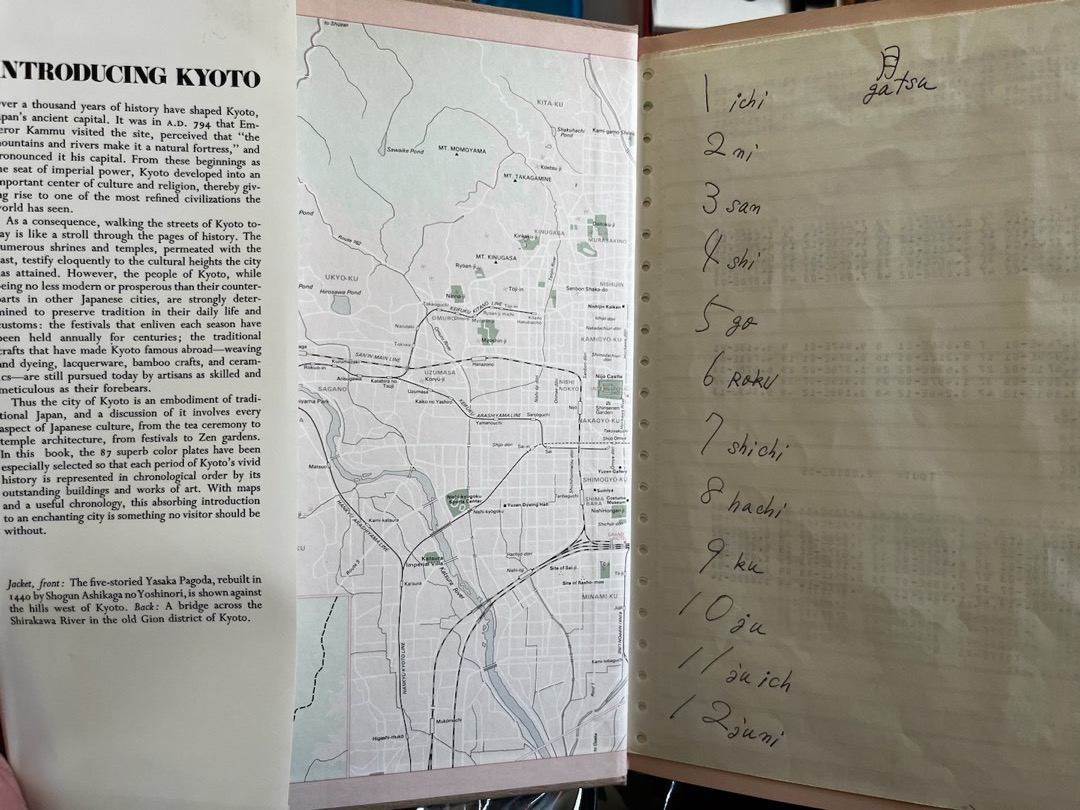 INTRODUCING KYOTO
ver a thousand years of history have shaped Kyoto,
apan's ancient capital. It was in A.D. 794 that Em-
eror Kammu visited the site, perceived that “the
ountains and rivers make it a natural fortress,” and
ronounced it his capital. From these beginnings as
he seat of imperial power, Kyoto developed into an
mportant center of culture and religion, thereby giv-
ng rise to one of the most refined civilizations the
world has seen.
As a consequence, walking the streets of Kyoto to-
ay is like a stroll through the pages of history. The
umerous shrines and temples, permeated with the
ast, testify eloquently to the cultural heights the city
as attained. However, the people of Kyoto, while
being no less modern or prosperous than their counter-
parts in other Japanese cities, are strongly deter-
mined to preserve tradition in their daily life and
customs: the festivals that enliven each season have
been held annually for centuries; the traditional
crafts that have made Kyoto famous abroad—weaving
and dyeing, lacquerware, bamboo crafts, and ceram-
ics—are still pursued today by artisans as skilled and
meticulous as their forebears.
Thus the city of Kyoto is an embodiment of tradi-
tional Japan, and a discussion of it involves every
aspect of Japanese culture, from the tea ceremony to
temple architecture, from festivals to Zen gardens.
In this book, the 87 superb color plates have been
especially selected so that each period of Kyoto's vivid
history is represented in chronological order by its
outstanding buildings and works of art. With maps
and a useful chronology, this absorbing introduction
to an enchanting city is something no visitor should be
without.
Jacket, front: The five-storied Yasaka Pagoda, rebuilt in
1440 by Shogun Ashikaga no Yoshinori, is shown against
the hills west of Kyoto. Back: A bridge across the
Shirakawa River in the old Gion district of Kyoto.
to Shuzan
KITA-KU
Shakuhachi Pond
Kami-gamo Shrine
Sawaike Pond
MT. MOMOYAMA
MT. TAKAGAMINE
Pond
Route 162
Kinkaku-ji
KINUGASA
MURASAKINO
MT. KINUGASA
UKYO-KU
Hirosawa Pond
Ryōan-ji
Tōji-in
Senbon Shaka-do
NISHIJIN
Ninna-ji
Nishijin Kaikan
KEIFUKU KITANO LINE
OMURO
Myōshin-ji
KAMIGYO-KU
SAN'IN MAIN LINE
Hanazono
UZUMASA
Kōryū-ji
SAGANO
Uzumasa
Kaiko no Yashiro
NISHI NOKYO
Nijo Castle
Shinsen-en Garden
KEIFUKU ARASHIYAMA LINE
Yamanouchi
NAKAGYO-KU
Shijo-dori
Sai-in
SHIMOGYO-KU
Matsuo
Yuzen Gallery
Sumiya
SHIMABARA
Costume Museum
Nishi-kyogoku Sports Center
Nishi-kyōgoku
Yuzen Dyeing Hall
Tanbaguchi
Nishi Hongan-ji
Kami-katsura
HANKYU ARASHIYAMA LINE
Katsura Imperial Villa
Katsura
Katsura River
Route 9
Hachijo-dori
Nishi-oji
Site of Sai-ji
Site of Rasho-mon
Tō-ji
MINAMI-KU
HANKYU KYOTO LINE
Mukōmachi
Higashi-mukō
Kami-tobaguchi
Route 1
to Osaka
月
gatsu
1 ichi
2 ni
3 san
4 shi
5 go
6 ROKU
7 shichi
8 hachi
9 ku
10 ju
11 ju ich
12 juni